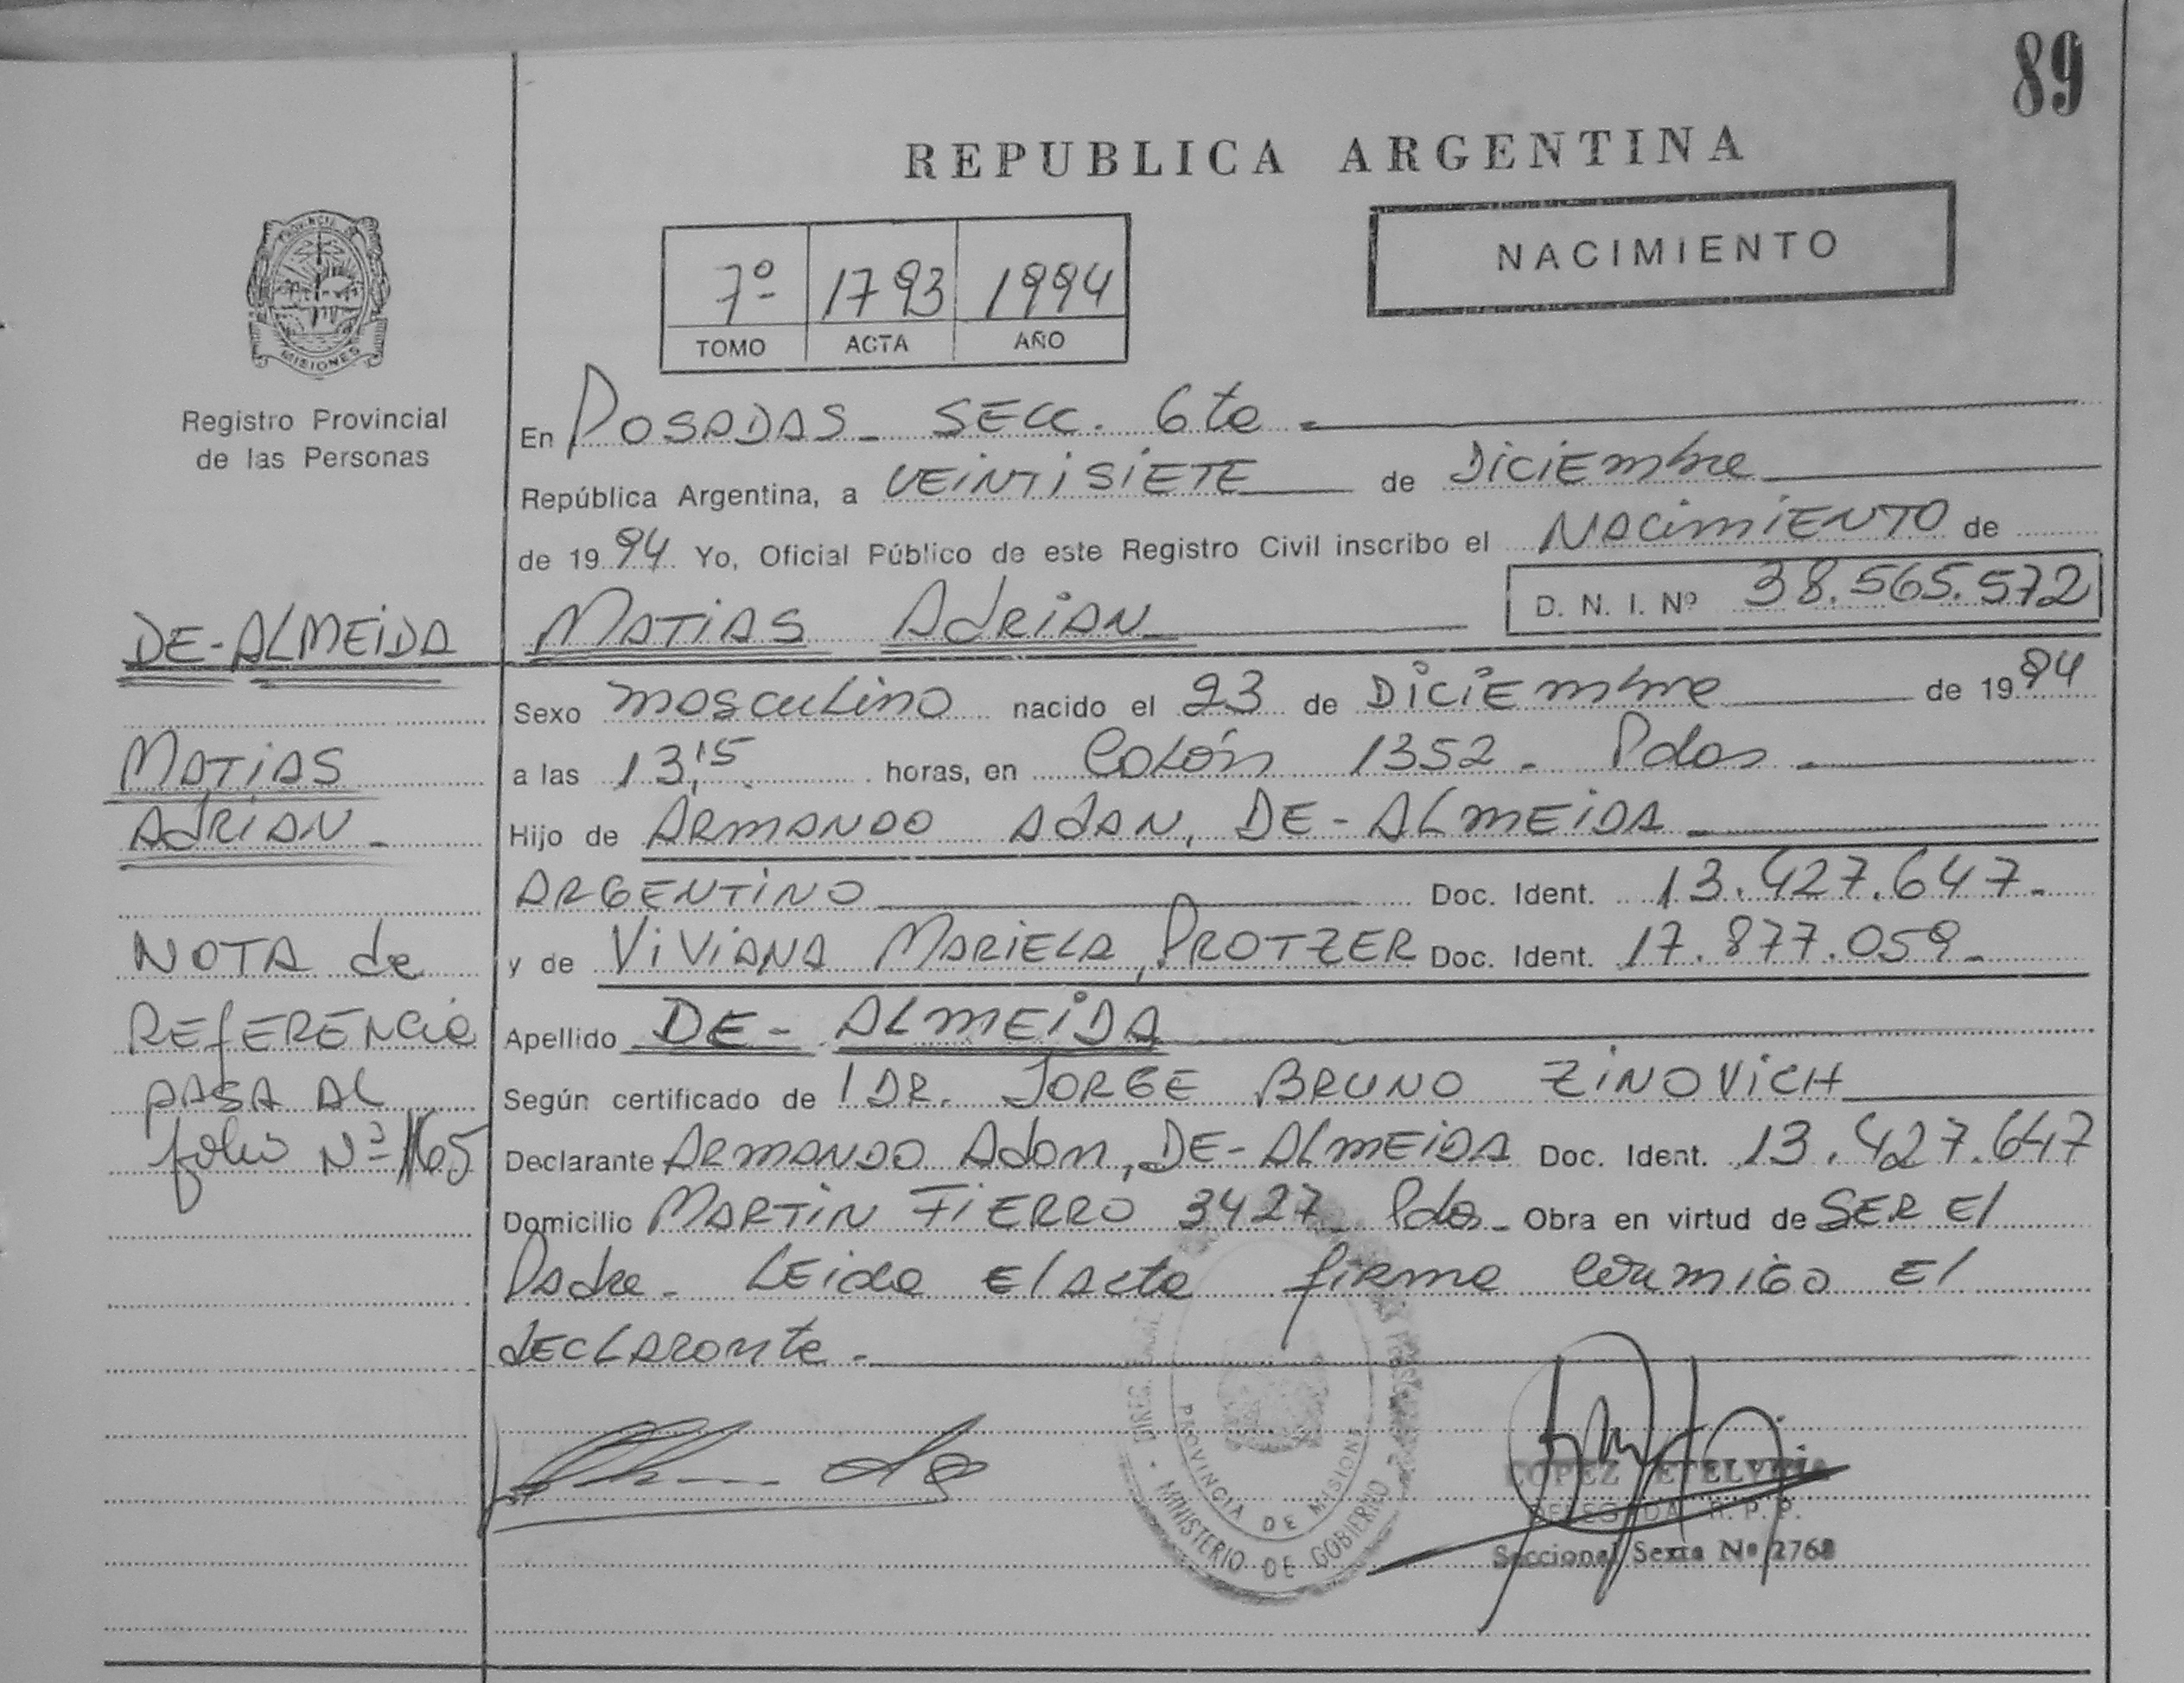 89
REPUBLICA ARGENTINA
NACIMIENTO
7º 1793 1994
TOMO ACTA AÑO
PROVINCIA DE
MISIONES
Registro Provincial
de las Personas
En POSADAS - SECC. 6ta -
República Argentina, a VEINTISIETE de DICIEMBRE
de 1994 Yo, Oficial Público de este Registro Civil inscribo el NACIMIENTO de
D. N. I. Nº 38.565.572
MATIAS ADRIAN
DE-ALMEIDA
MATIAS
ADRIAN -
NOTA de
REFERENCIA
PASA AL
folio Nº 165
Sexo masculino nacido el 23 de DICIEMBRE de 1994
a las 13,15 horas, en Colón 1352 - Pdas -
Hijo de ARMANDO ADAN, DE-ALMEIDA -
ARGENTINO Doc. Ident. 13.427.647-
y de VIVIANA MARIELA, PROTZER Doc. Ident. 17.877.059-
Apellido DE- ALMEIDA
Según certificado de l DR. JORGE BRUNO ZINOVICH
Declarante ARMANDO Adan, DE-ALMEIDA Doc. Ident. 13.427.647
Domicilio MARTIN FIERRO 3427 Pdas - Obra en virtud de SER El
Padre - Leida El acta firma conmigo El
declarante -
PROVINCIA DE MISIONES
MINISTERIO DE GOBIERNO
LOPEZ ETELVINA
DELEGADA R. P. P.
Seccional Sexta Nº 2768